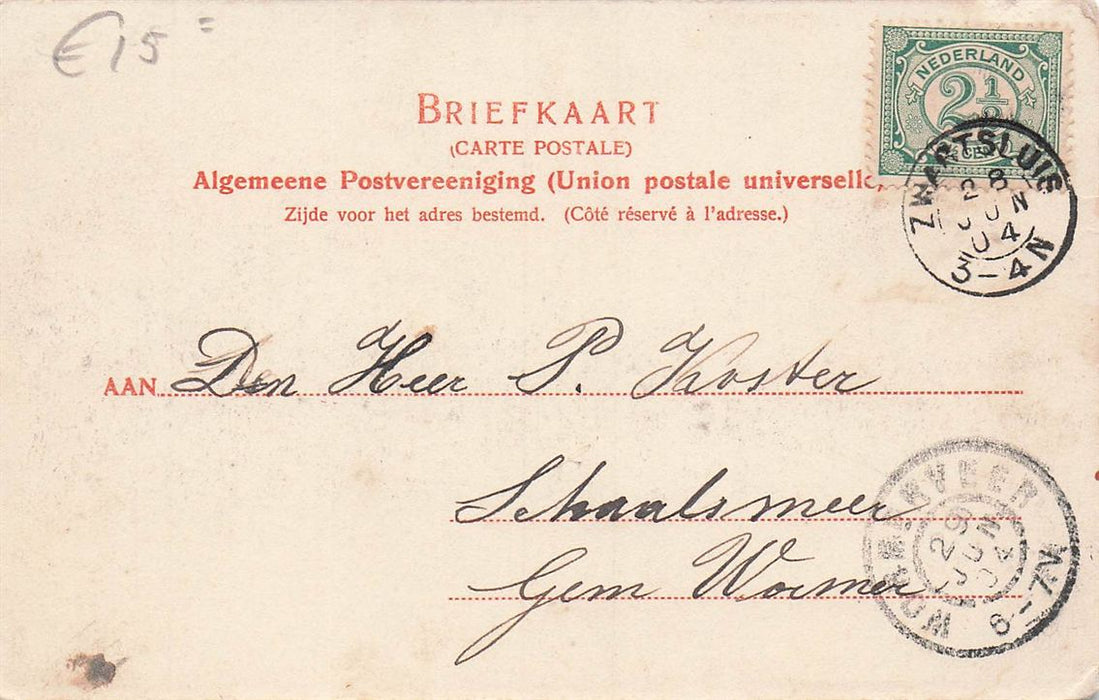 €15=
BRIEFKAART
(CARTE POSTALE)
Algemeene Postvereeniging (Union postale universelle)
Zijde voor het adres bestemd. (Côté réservé à l'adresse.)
NEDERLAND
2½
CENT
ZWARTSLUIS
28
JUN
04
3-4N
AAN Den Heer P. Koster
Schaalsmeer
Gem Wormer
WORMERVEER
29
JUN
04
6-7V